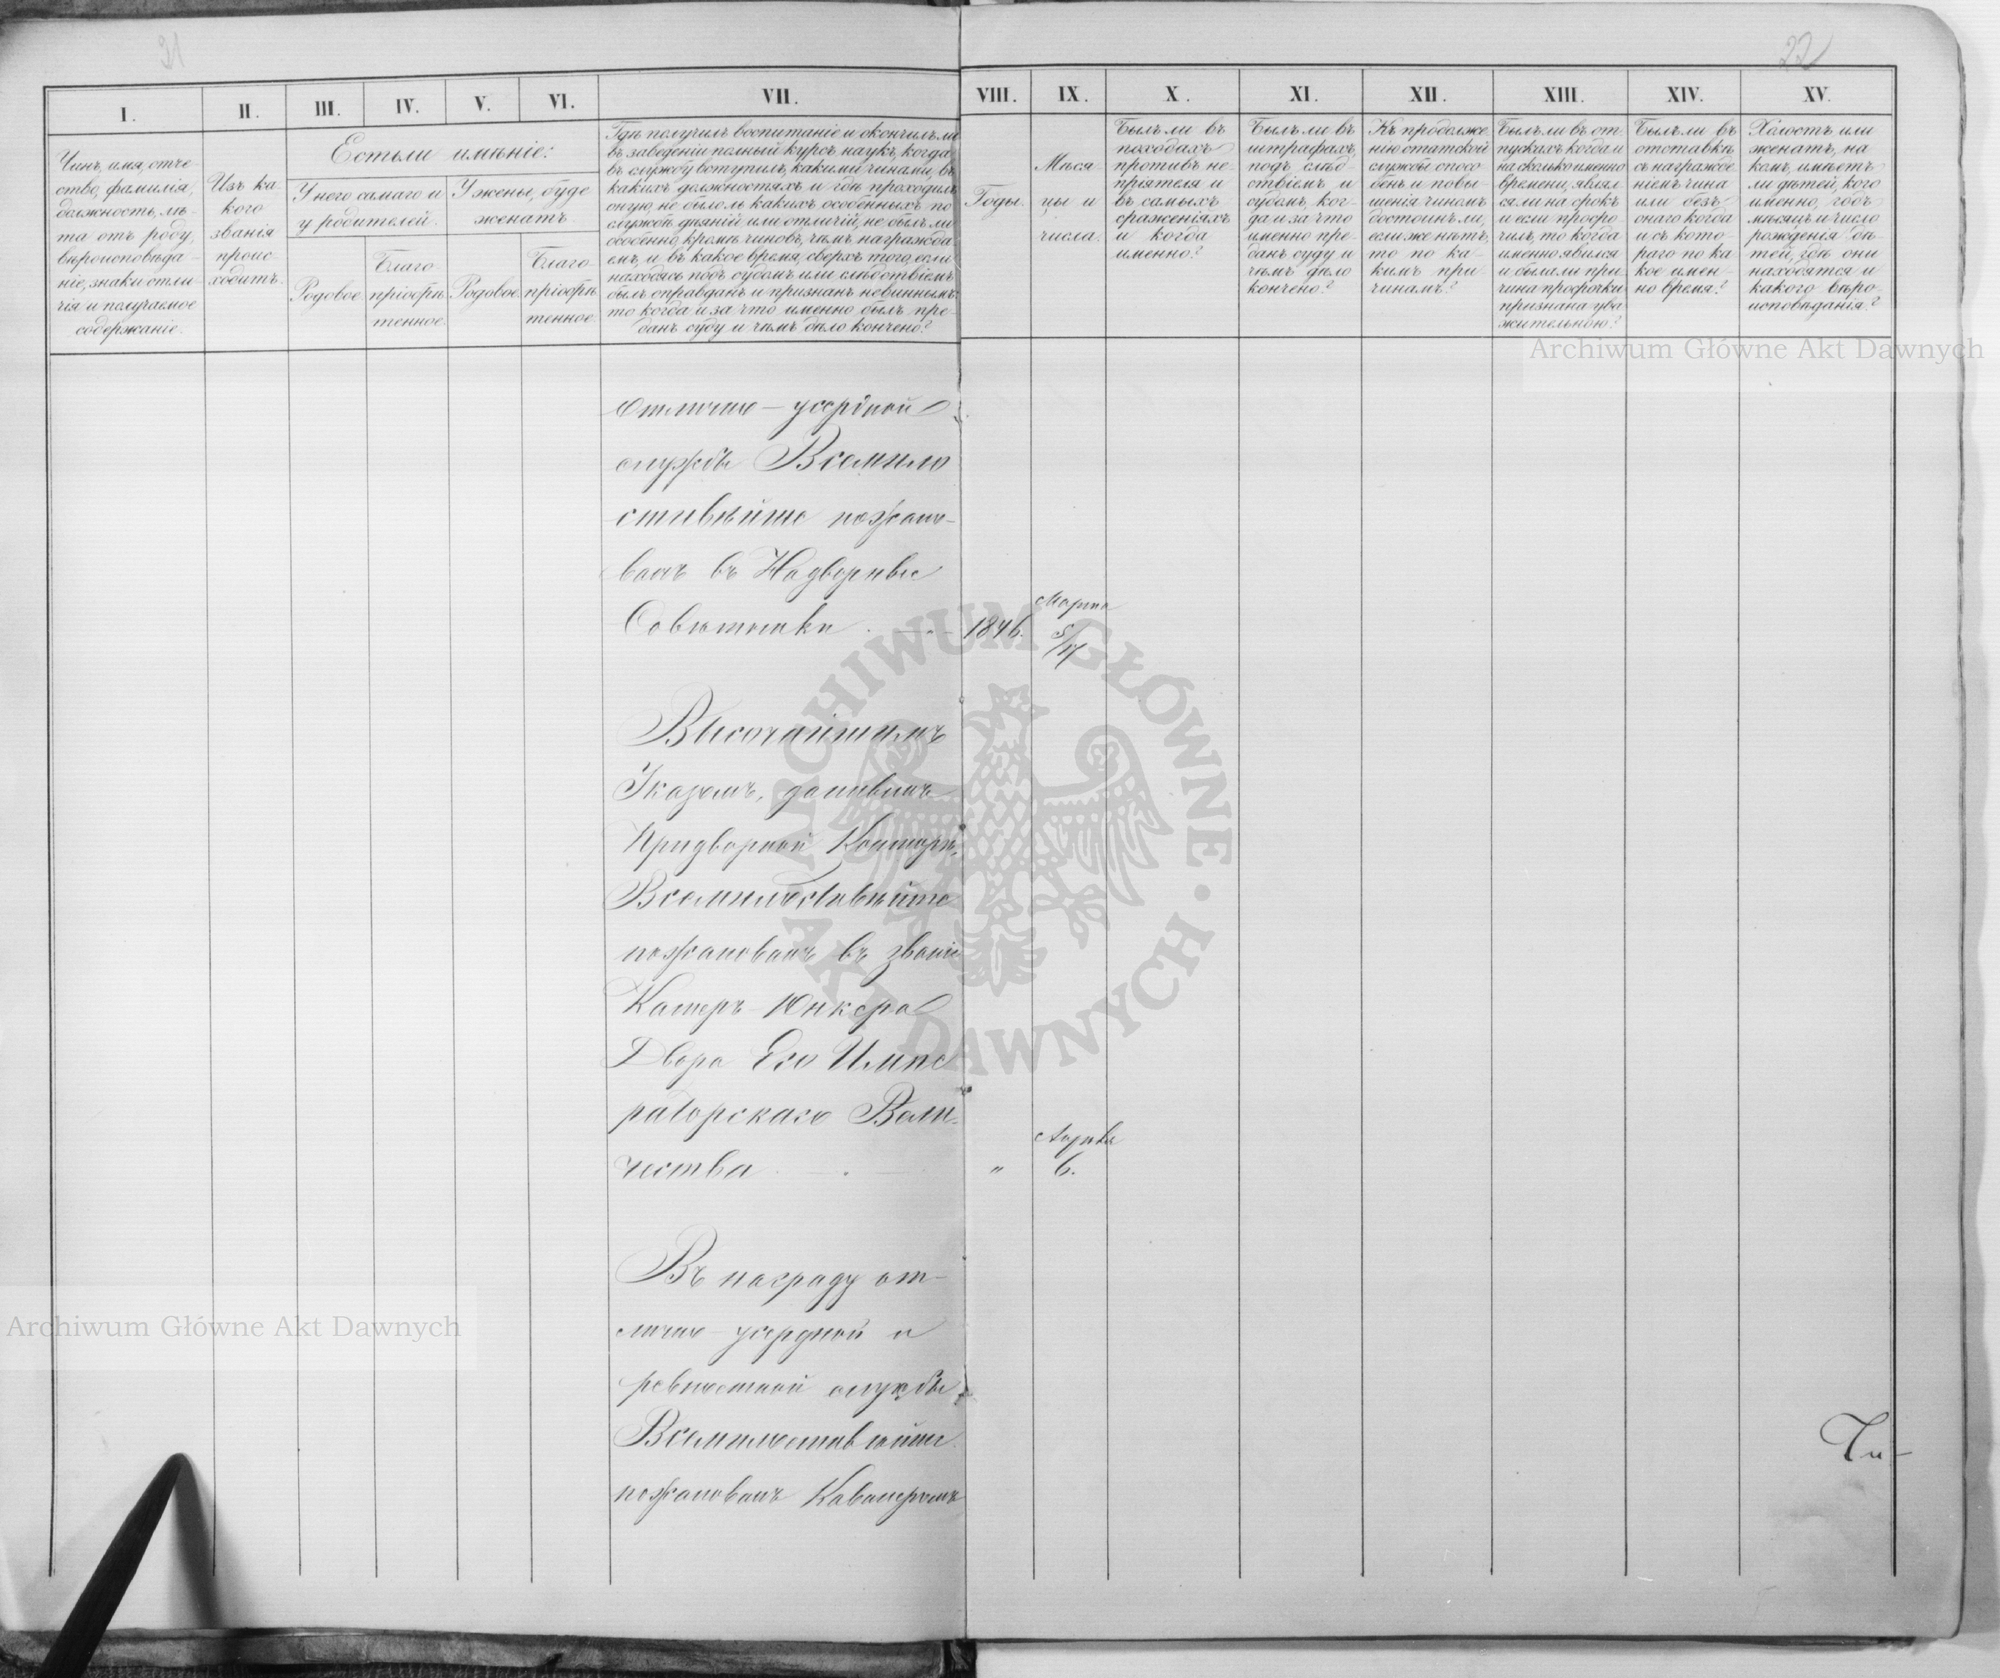 21
22
I.
II.
III.
IV.
V.
VI.
VII.
VIII.
IX.
X.
XI.
XII.
XIII.
XIV.
XV.
Чинъ, имя, отче-
ство, фамилія,
должность, лѣ-
та отъ роду,
вѣроисповѣда-
ніе, знаки отли-
чія и получаемое
содержаніе.
Изъ ка-
кого
званія
проис-
ходитъ.
Естьли имѣніе:
У него самаго и
у родителей.
У жены, буде
женатъ.
Родовое.
Благо-
пріобрѣ-
тенное.
Родовое.
Благо-
пріобрѣ-
тенное.
Гдѣ получилъ воспитаніе и окончилъ ли
въ заведеніи полный курсъ наукъ, когда
въ службу вступилъ, какими чинами, въ
какихъ должностяхъ и гдѣ проходилъ
оную, не было ль какихъ особенныхъ по
службѣ дѣяній или отличій, не былъ ли
особенно, кромѣ чиновъ, чѣмъ награжда-
емъ, и въ какое время, сверхъ того, если
находясь подъ судомъ или слѣдствіемъ,
былъ оправданъ и признанъ невиннымъ,
то когда и за что именно былъ пре-
данъ суду и чѣмъ дѣло кончено?
Годы.
Мѣся-
цы и
числа.
Былъ ли въ
походахъ
противъ не-
пріятеля и
въ самыхъ
сраженіяхъ
и когда
именно?
Былъ ли въ
штрафахъ,
подъ слѣд-
ствіемъ и
судомъ, ког-
да и за что
именно пре-
данъ суду и
чѣмъ дѣло
кончено?
Къ продолже-
нію статской
службы спосо-
бенъ и повы-
шенія чиномъ
достоинъ ли,
если же нѣтъ,
то по ка-
кимъ при-
чинамъ?
Былъ ли въ от-
пускахъ когда и
на сколько именно
времени, являл-
ся ли на срокъ
и если просро-
чилъ, то когда
именно явился
и была ли при-
чина просрочки
признана ува-
жительною?
Былъ ли въ
отставкѣ
съ награжде-
ніемъ чина
или безъ
онаго когда
и съ кото-
раго по ка-
кое имен-
но время?
Холостъ или
женатъ, на
комъ, имѣетъ
ли дѣтей, кого
именно, годъ
мѣсяцъ и число
рожденія дѣ-
тей, гдѣ они
находятся и
какого вѣро-
исповѣданія?
Archiwum Główne Akt Dawnych
отлично-усердной
службы Всемило
стивѣйше пожало-
ванъ въ Надворные
Совѣтники 1846. Марта 5/17
Высочайшимъ
Указомъ, даннымъ
Придворной Конторѣ,
Всемилостивѣйше
пожалованъ въ званіи
Камеръ-Юнкера
Двора Его Импе
раторскаго Вели-
чества " Апрѣля 6.
Въ награду от-
лично-усердной и
ревностной службы
Всемилостивѣйше
пожалованъ Кавалеромъ
Чи-
Archiwum Główne Akt Dawnych
ARCHIWUM GŁÓWNE AKT DAWNYCH